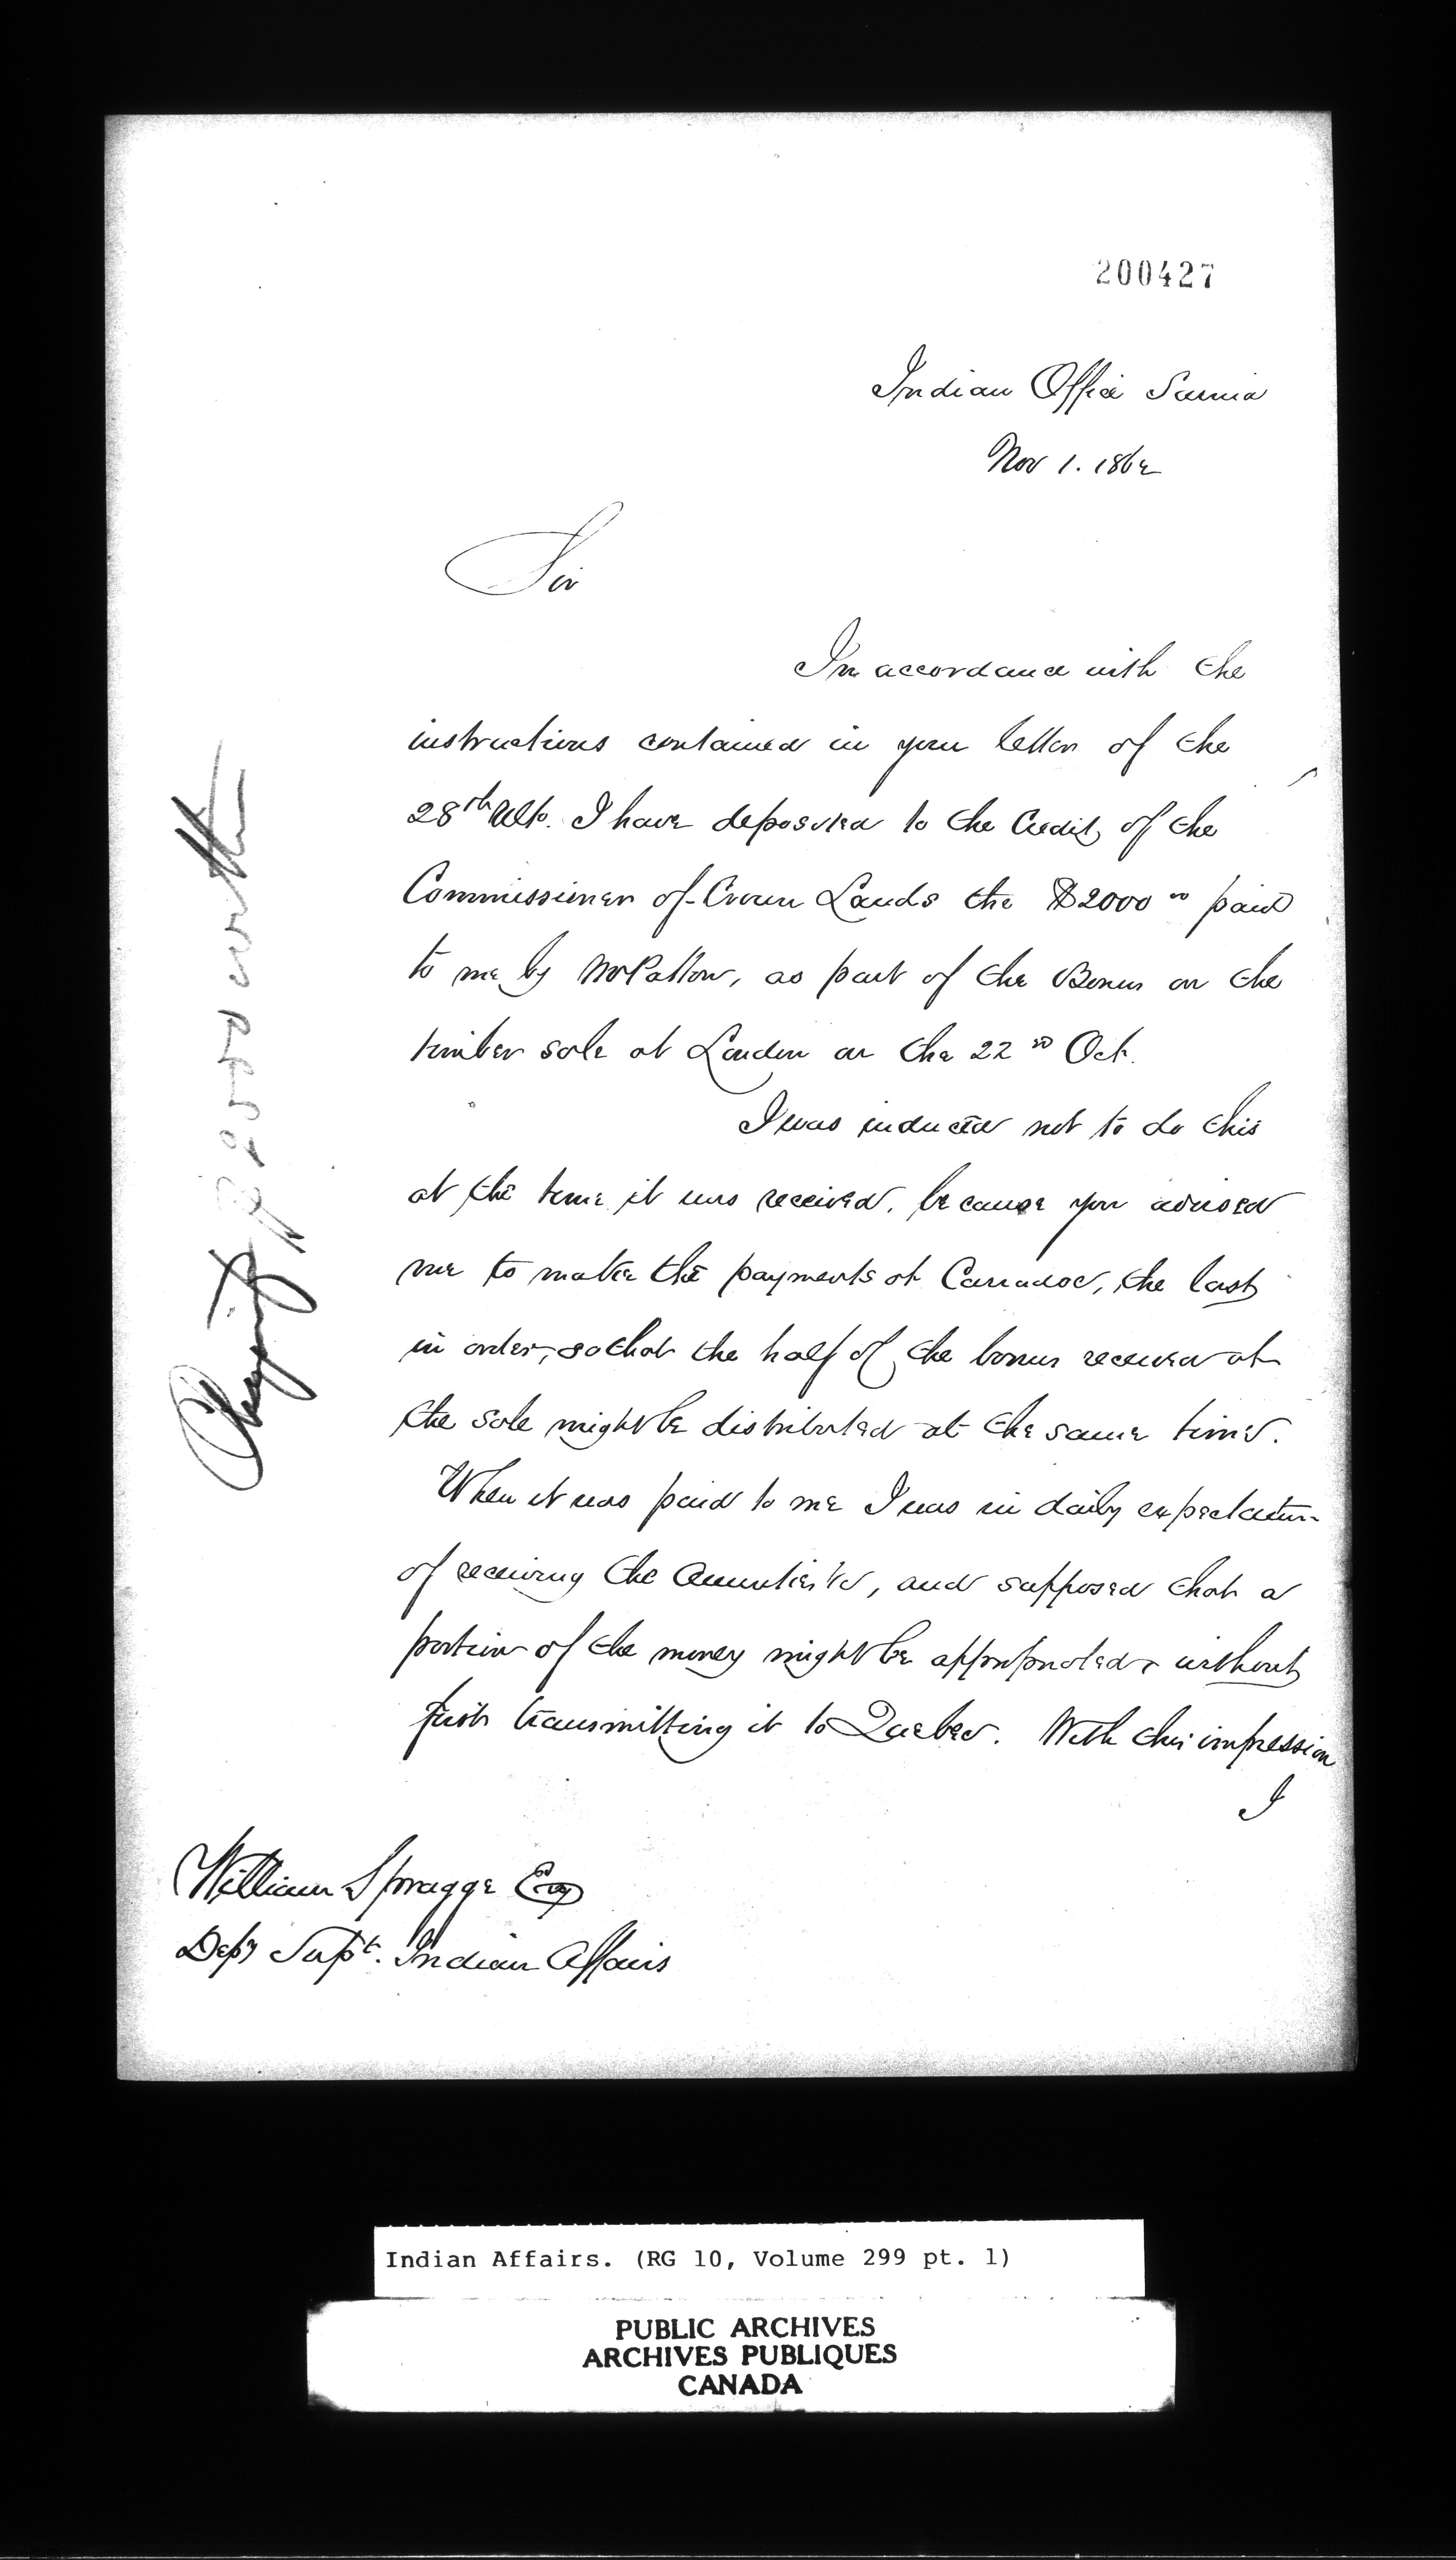 200427
Indian Office Sarnia
Nov 1. 1862
Sir
In accordance with the
instructions contained in your letter of the
28th Ulto. I have deposited to the Credit of the
Commissioner of Crown Lands the $2000 00 paid
to me by Mr Patton, as part of the Bonus on the
timber sale at London on the 22nd Oct.
I was induced not to do this
at the time it was received, because you advised
me to make the payments at Carradoc, the last
in order, so that the half of the bonus received at
the sale might be distributed at the same time.
When it was paid to me I was in daily expectation
of receiving the Annuities &c, and supposed that a
portion of the money might be appropriated without
first transmitting it to Quebec. With this impression
I
William Spragge Esq
Depy Supt. Indian Affairs
$2000
Indian Affairs. (RG 10, Volume 299 pt. 1)
PUBLIC ARCHIVES
ARCHIVES PUBLIQUES
CANADA